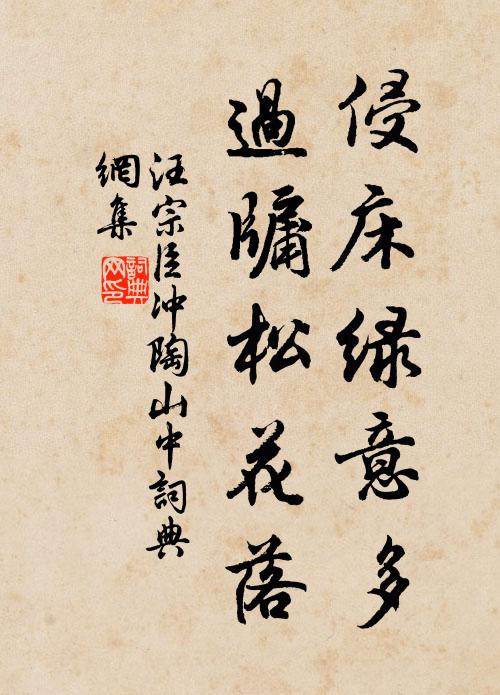 侵床绿意多
過牖松花落
汪宗臣冲陶山中詞典
網集
詞典
网印